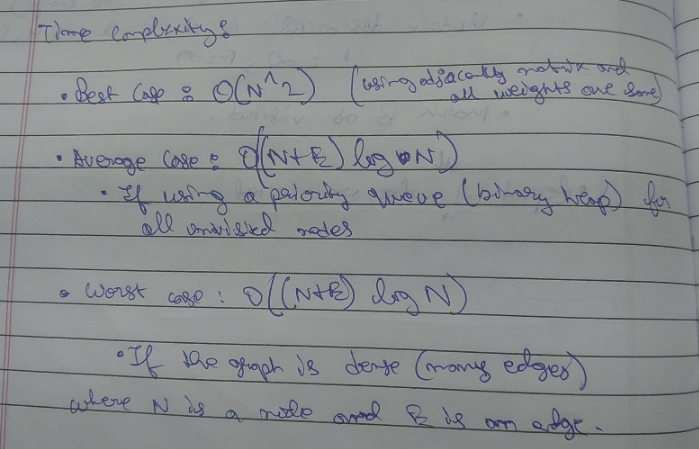 Time complexity:
• Best Case : O(N^2) (using adjacency matrix and
all weights are same)
• Average case : O((N+E) log N)
• If using a priority queue (binary heap) for
all unvisited nodes
• Worst case : O((N+E) log N)
• If the graph is dense (many edges)
where N is a node and E is an edge.